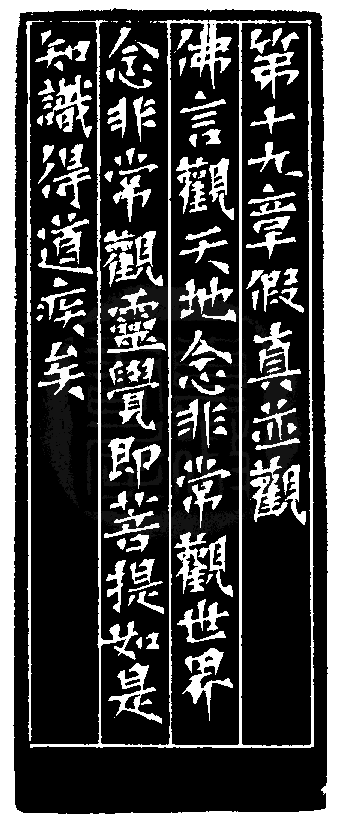 第十九章假真並觀
佛言觀天地念非常觀世界
念非常觀靈覺即菩提如是
知識得道疾矣